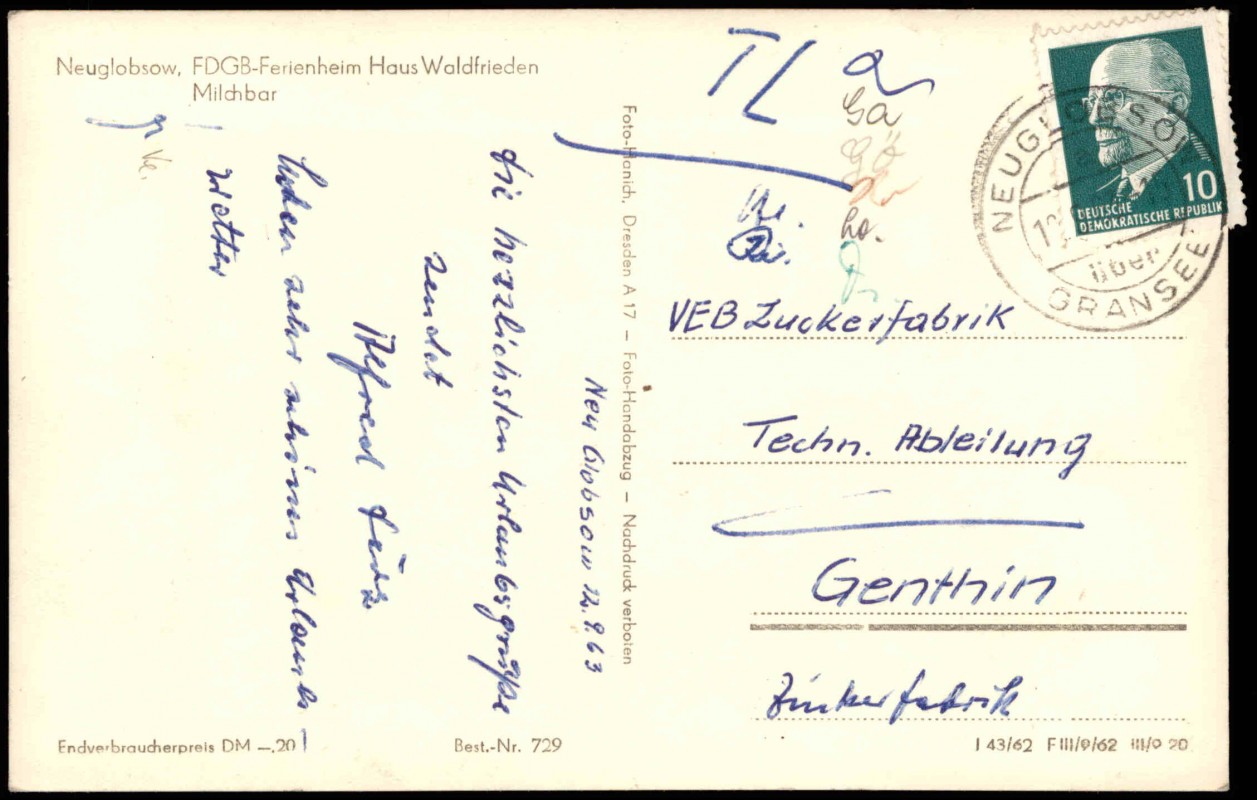 Neuglobsow, FDGB-Ferienheim Haus Waldfrieden
Milchbar
Neu Globsow 12.9.63
die herzlichsten Urlaubsgrüße
sendet
Alfred
haben sehr schönes Urlaubs-
wetter
Endverbraucherpreis DM —.20
Best.-Nr. 729
Foto-Hanich, Dresden A 17 — Foto-Handabzug — Nachdruck verboten
TL
Ga
ho.
10
DEUTSCHE
DEMOKRATISCHE REPUBLIK
NEUGLOBSOW
über
GRANSEE
VEB Zuckerfabrik
Techn. Abteilung
Genthin
Zuckerfabrik
I 43/62 F III/9/62 III/9 20